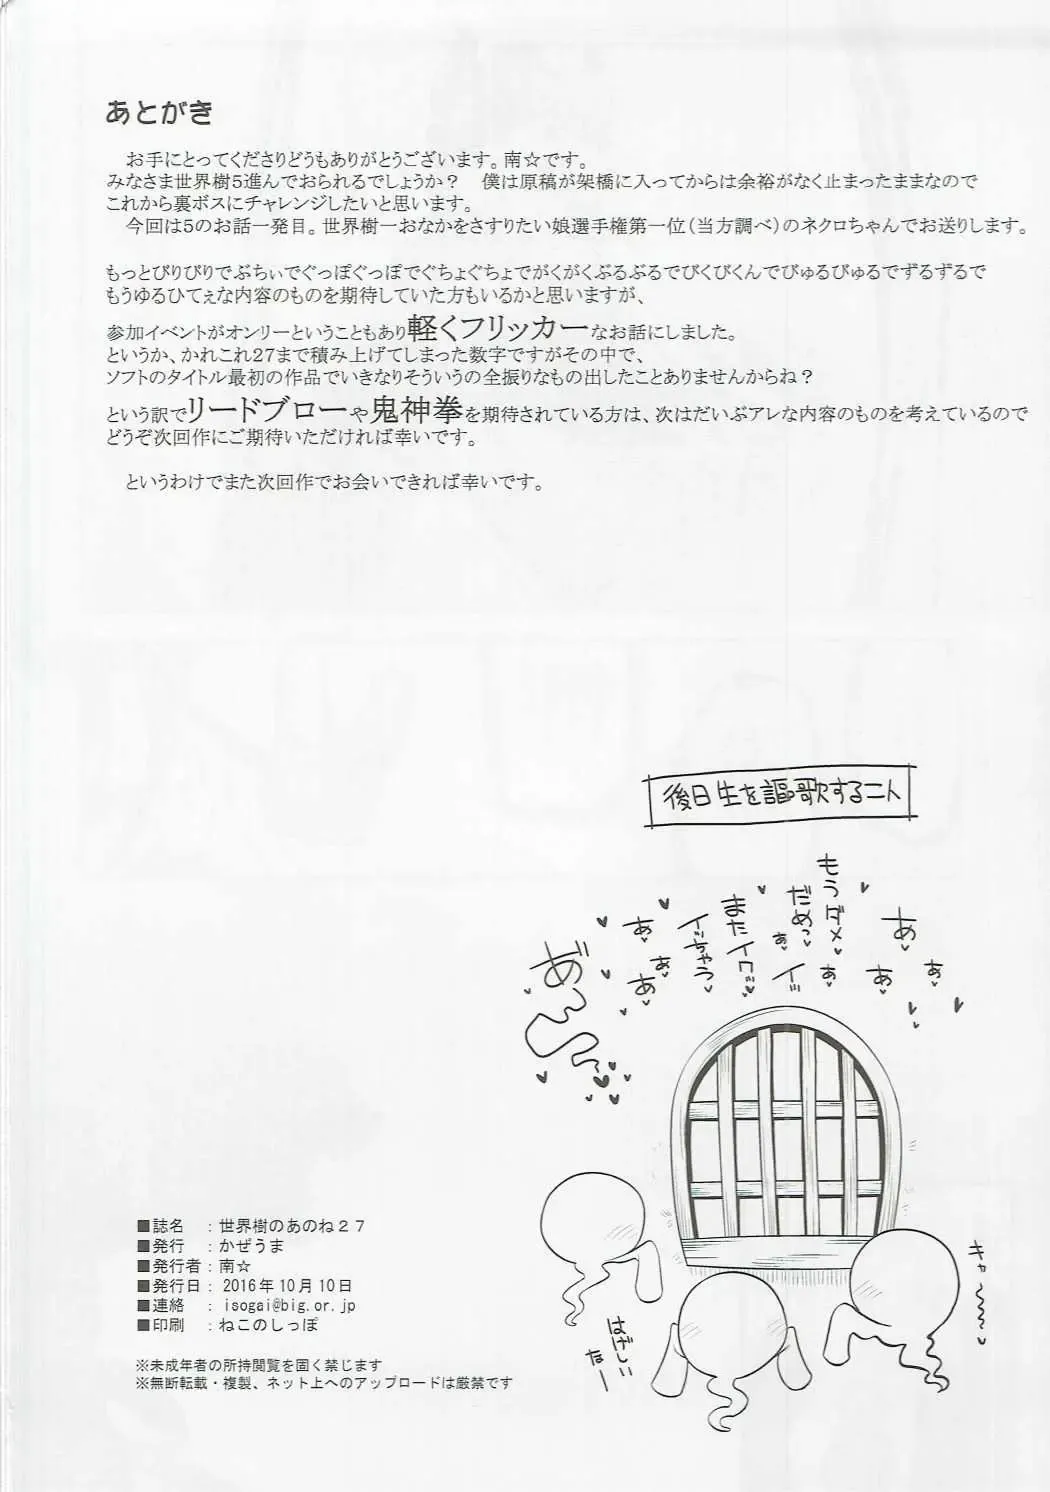 あとがき
お手にとってくださりどうもありがとうございます。南☆です。
みなさま世界樹5進んでおられるでしょうか？　僕は原稿が架橋に入ってからは余裕がなく止まったままなので
これから裏ボスにチャレンジしたいと思います。
今回は5のお話一発目。世界樹一おなかをさすりたい娘選手権第一位(当方調べ)のネクロちゃんでお送りします。
もっとびりびりでぶちぃでぐっぽぐっぽでぐちょぐちょでがくがくぶるぶるでびくびくんでびゅるびゅるでずるずるで
もうゆるひてぇな内容のものを期待していた方もいるかと思いますが、
参加イベントがオンリーということもあり軽くフリッカーなお話にしました。
というか、かれこれ27まで積み上げてしまった数字ですがその中で、
ソフトのタイトル最初の作品でいきなりそういうの全振りなもの出したことありませんからね？
という訳でリードブローや鬼神拳を期待されている方は、次はだいぶアレな内容のものを考えているので
どうぞ次回作にご期待いただければ幸いです。
というわけでまた次回作でお会いできれば幸いです。
後日生を謳歌する二人
あ♥
あ♥
あ♥
もうダメ♥
だめっ♥
あ♥
あ♥
イッ
またイクッ♥
イッちゃう♥
あ♥
あ♥
あ♥
あ゛
キャ〜〜♥
はげしい
なー
■誌名　：世界樹のあのね２７
■発行　：かぜうま
■発行者：南☆
■発行日：2016年10月10日
■連絡　：isogai@big.or.jp
■印刷　：ねこのしっぽ
※未成年者の所持閲覧を固く禁じます
※無断転載・複製、ネット上へのアップロードは厳禁です